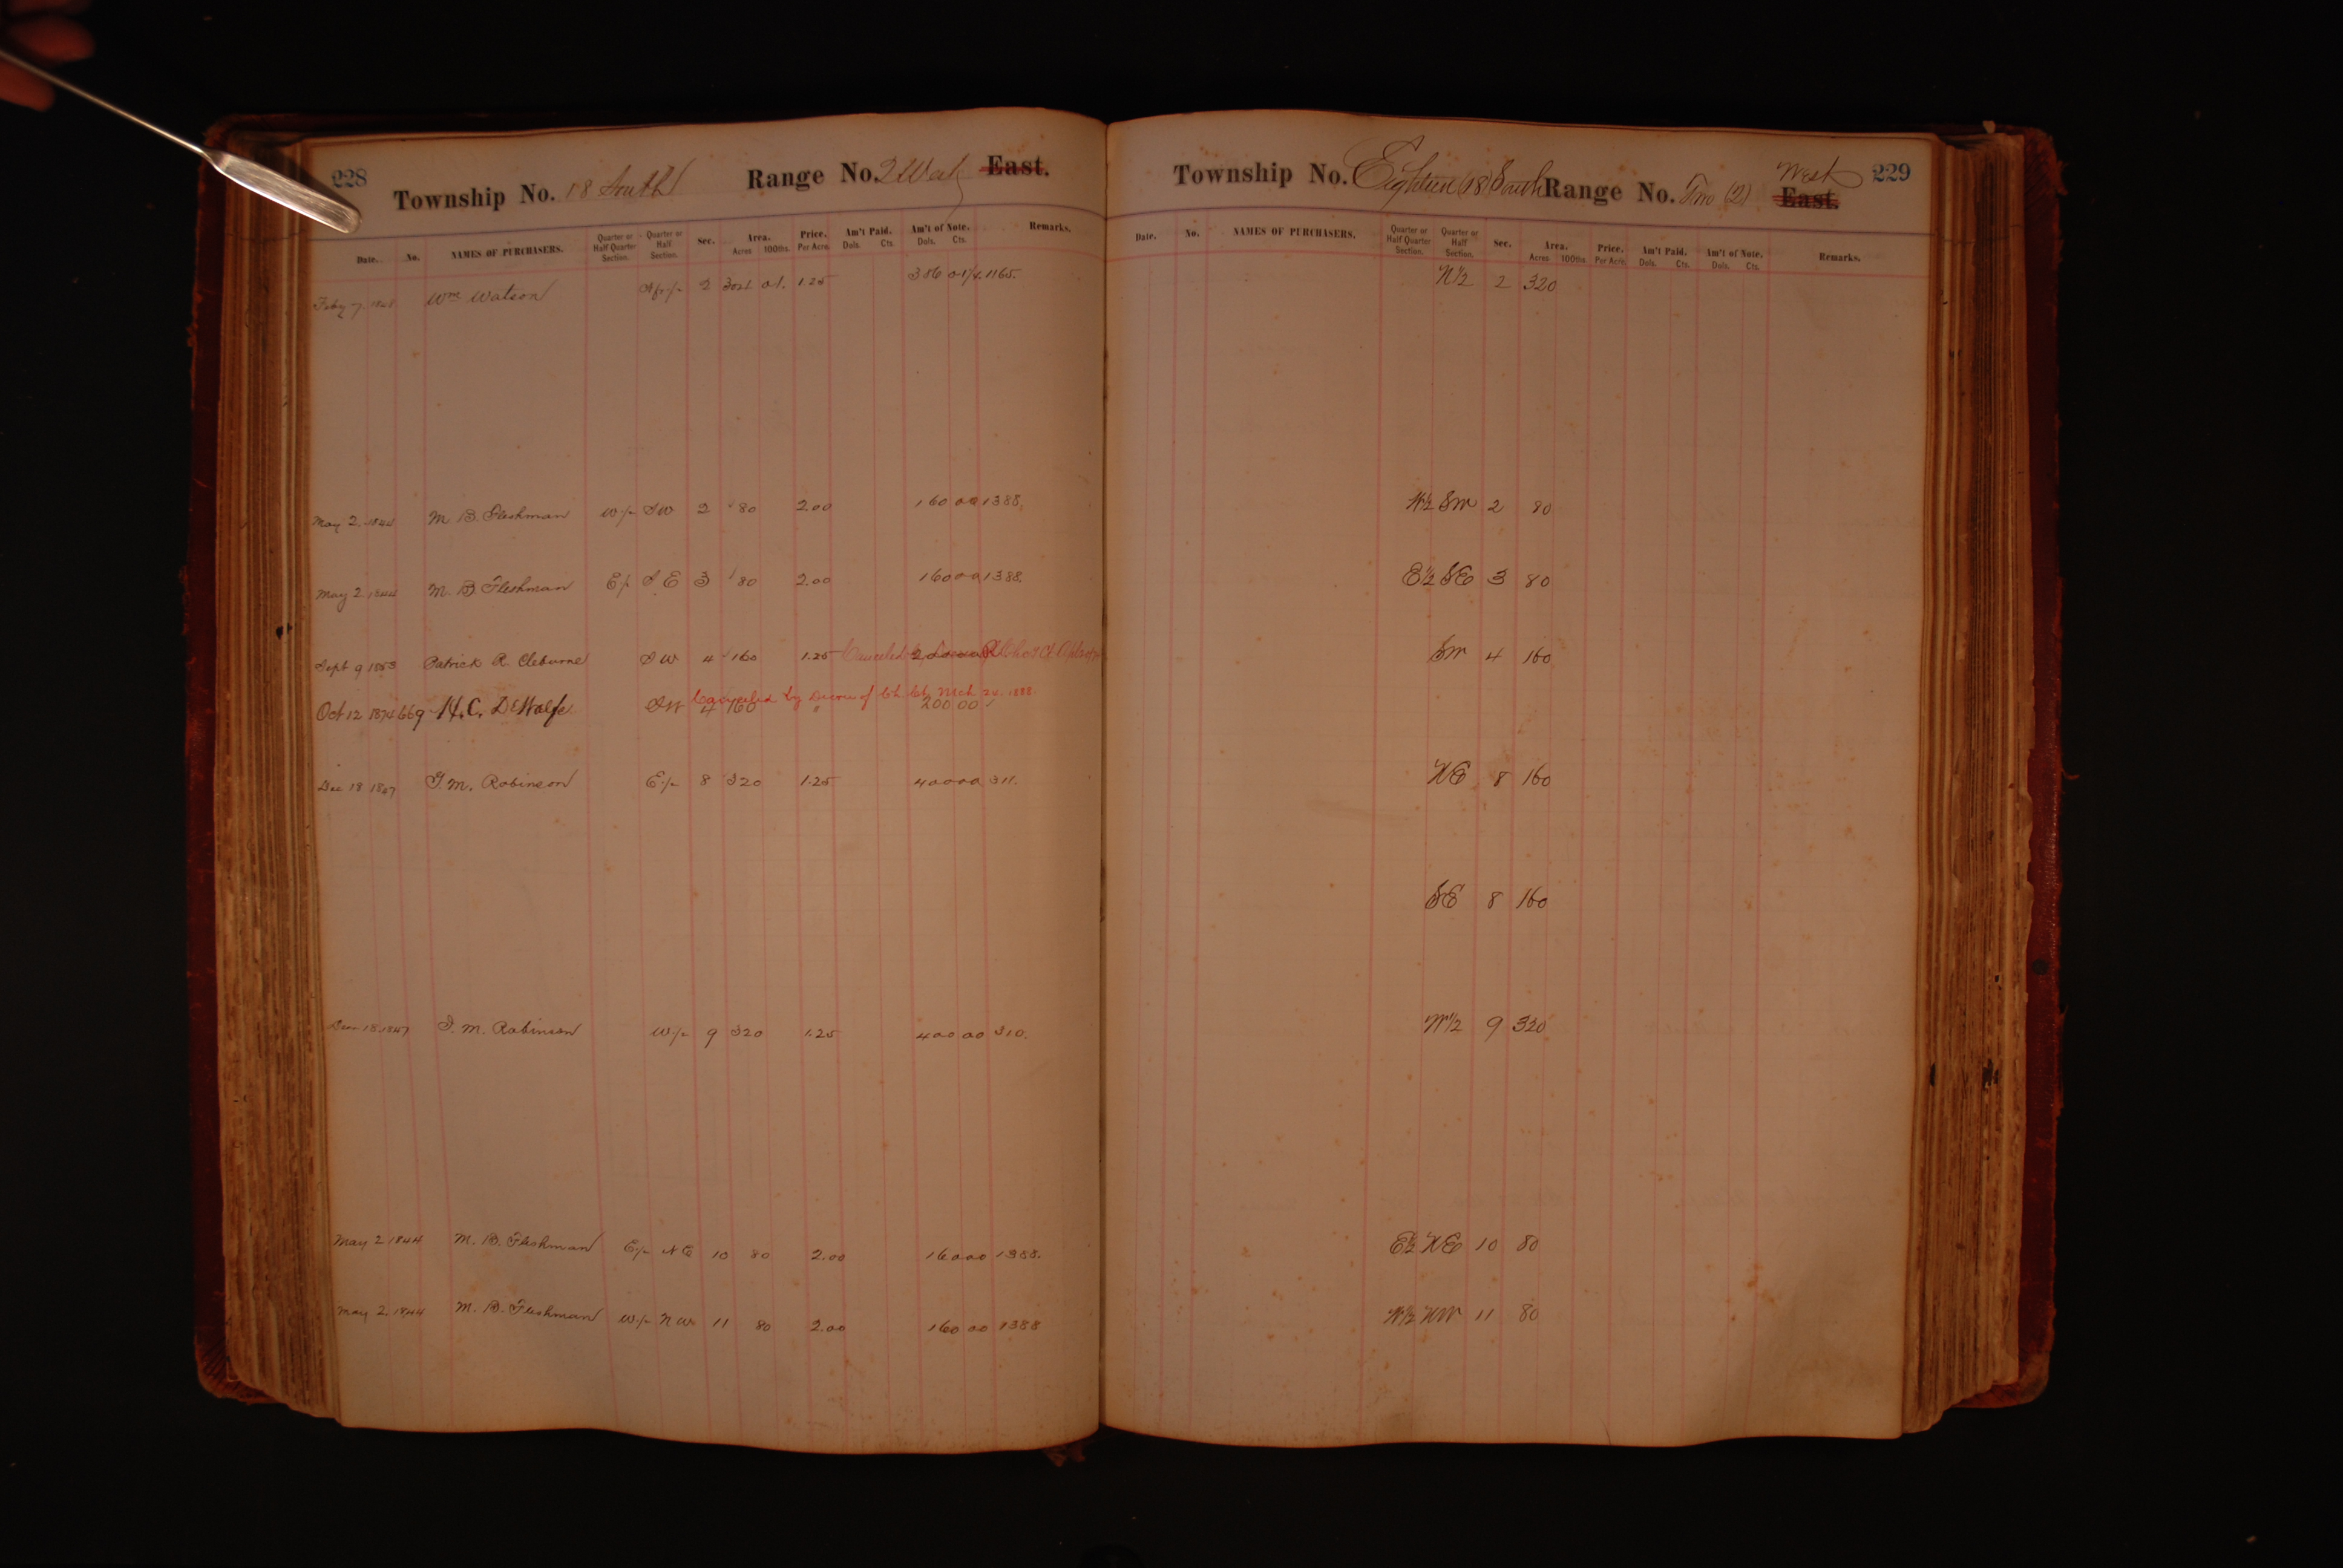 228
Township No. 18 South Range No. 2 West East.
Date. No. NAMES OF PURCHASERS. Quarter or Half Quarter Section. Quarter or Half Section. Sec. Area. Acres 100ths. Price. Per Acre. Am't Paid. Dols. Cts. Am't of Note. Dols. Cts. Remarks.
Feby 7. Wm Watson 2 1.25 386 1165.
May 2. 1844 M B. Fleshman W ½ SW 2 80 2.00 160 00 1388.
May 2 1844 M. B. Fleshman E ½ SE 3 80 2.00 160 00 1388.
Sept 9 1853 Patrick R. Cleburne SW 4 160 1.25 Canceled 200 00
Oct 12 1874 669 H. C. DeWolfe SW 4 160 " 200 00 Canceled by Decree of Ch. Ct. Mch 24. 1888
Dec 18 1847 J. M. Robinson E ½ 8 320 1.25 400 00 311.
18 1847 J. M. Robinson W ½ 9 320 1.25 400 00 310.
May 2 1844 M. B. Fleshman E ½ NE 10 80 2.00 160 00 1388.
May 2. 1844 M. B. Fleshman W ½ NW 11 80 2.00 160 00 1388
229
Township No. Eighteen (18) South Range No. Two (2) West East.
Date. No. NAMES OF PURCHASERS. Quarter or Half Quarter Section. Quarter or Half Section. Sec. Area. Acres 100ths. Price. Per Acre. Am't Paid. Dols. Cts. Am't of Note. Dols. Cts. Remarks.
N ½ 2 320
W ½ SW 2 80
E ½ SE 3 80
SW 4 160
NE 8 160
SE 8 160
W ½ 9 320
E ½ NE 10 80
W ½ NW 11 80